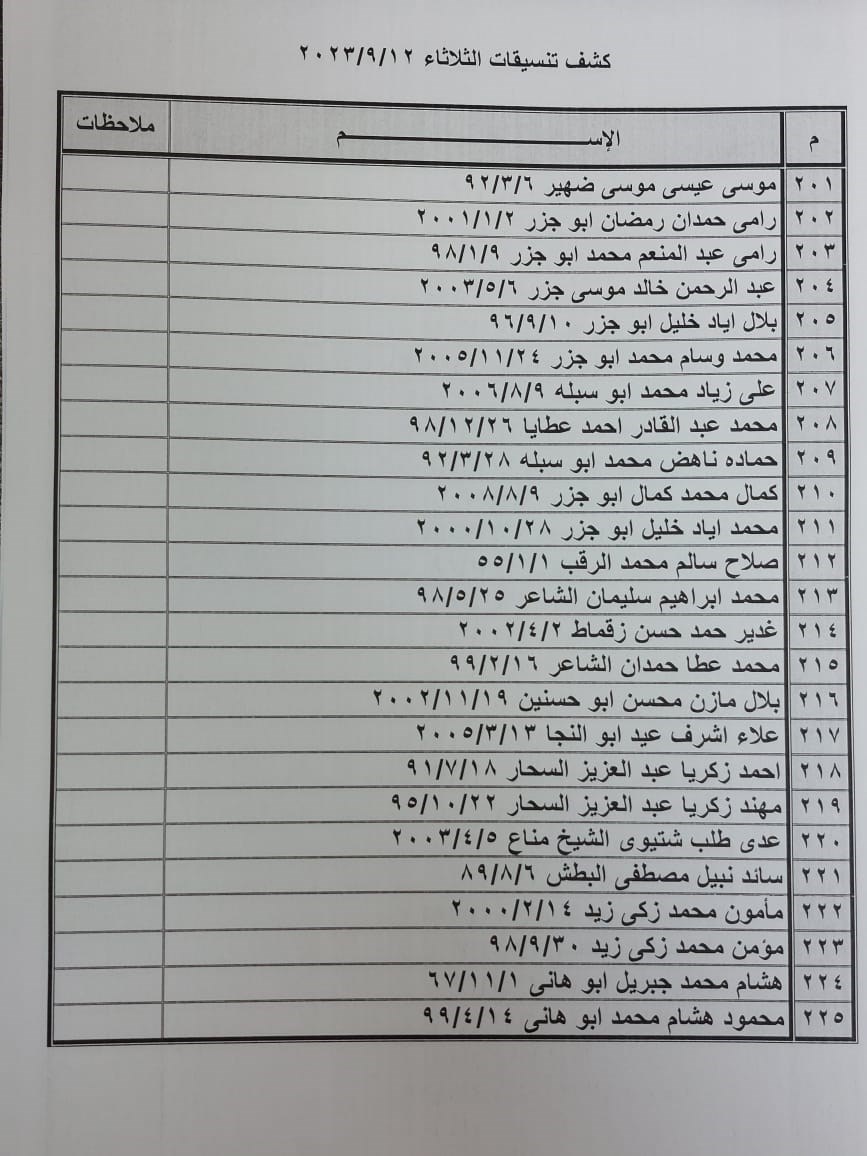 كشف تنسيقات الثلاثاء ٢٠٢٣/٩/١٢
م الإســـــــــــم ملاحظات
٢٠١ موسى عيسى موسى ضهير ٩٢/٣/٦
٢٠٢ رامى حمدان رمضان ابو جزر ٢٠٠١/١/٢
٢٠٣ رامى عبد المنعم محمد ابو جزر ٩٨/١/٩
٢٠٤ عبد الرحمن خالد موسى جزر ٢٠٠٣/٥/٦
٢٠٥ بلال اياد خليل ابو جزر ٩٦/٩/١٠
٢٠٦ محمد وسام محمد ابو جزر ٢٠٠٥/١١/٢٤
٢٠٧ على زياد محمد ابو سبله ٢٠٠٦/٨/٩
٢٠٨ محمد عبد القادر احمد عطايا ٩٨/١٢/٢٦
٢٠٩ حماده ناهض محمد ابو سبله ٩٢/٣/٢٨
٢١٠ كمال محمد كمال ابو جزر ٢٠٠٨/٨/٩
٢١١ محمد اياد خليل ابو جزر ٢٠٠٠/١٠/٢٨
٢١٢ صلاح سالم محمد الرقب ٥٥/١/١
٢١٣ محمد ابراهيم سليمان الشاعر ٩٨/٥/٢٥
٢١٤ غدير حمد حسن زقماط ٢٠٠٢/٤/٢
٢١٥ محمد عطا حمدان الشاعر ٩٩/٢/١٦
٢١٦ بلال مازن محسن ابو حسنين ٢٠٠٢/١١/١٩
٢١٧ علاء اشرف عيد ابو النجا ٢٠٠٥/٣/١٣
٢١٨ احمد زكريا عبد العزيز السحار ٩١/٧/١٨
٢١٩ مهند زكريا عبد العزيز السحار ٩٥/١٠/٢٢
٢٢٠ عدى طلب شتيوى الشيخ مناع ٢٠٠٣/٤/٥
٢٢١ سائد نبيل مصطفى البطش ٨٩/٨/٦
٢٢٢ مأمون محمد زكى زيد ٢٠٠٠/٢/١٤
٢٢٣ مؤمن محمد زكى زيد ٩٨/٩/٣٠
٢٢٤ هشام محمد جبريل ابو هانى ٦٧/١١/١
٢٢٥ محمود هشام محمد ابو هانى ٩٩/٤/١٤